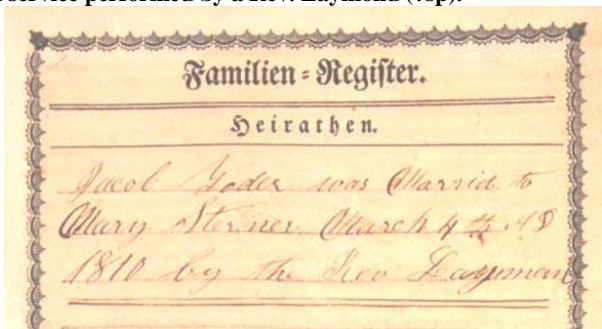 service performed by a Rev. Laymond (?sp).
Familien-Register.
Heirathen.
Jacob Yoder was Marrid to
Mary Sterner March 4th AD
1810 by the Rev Laymon